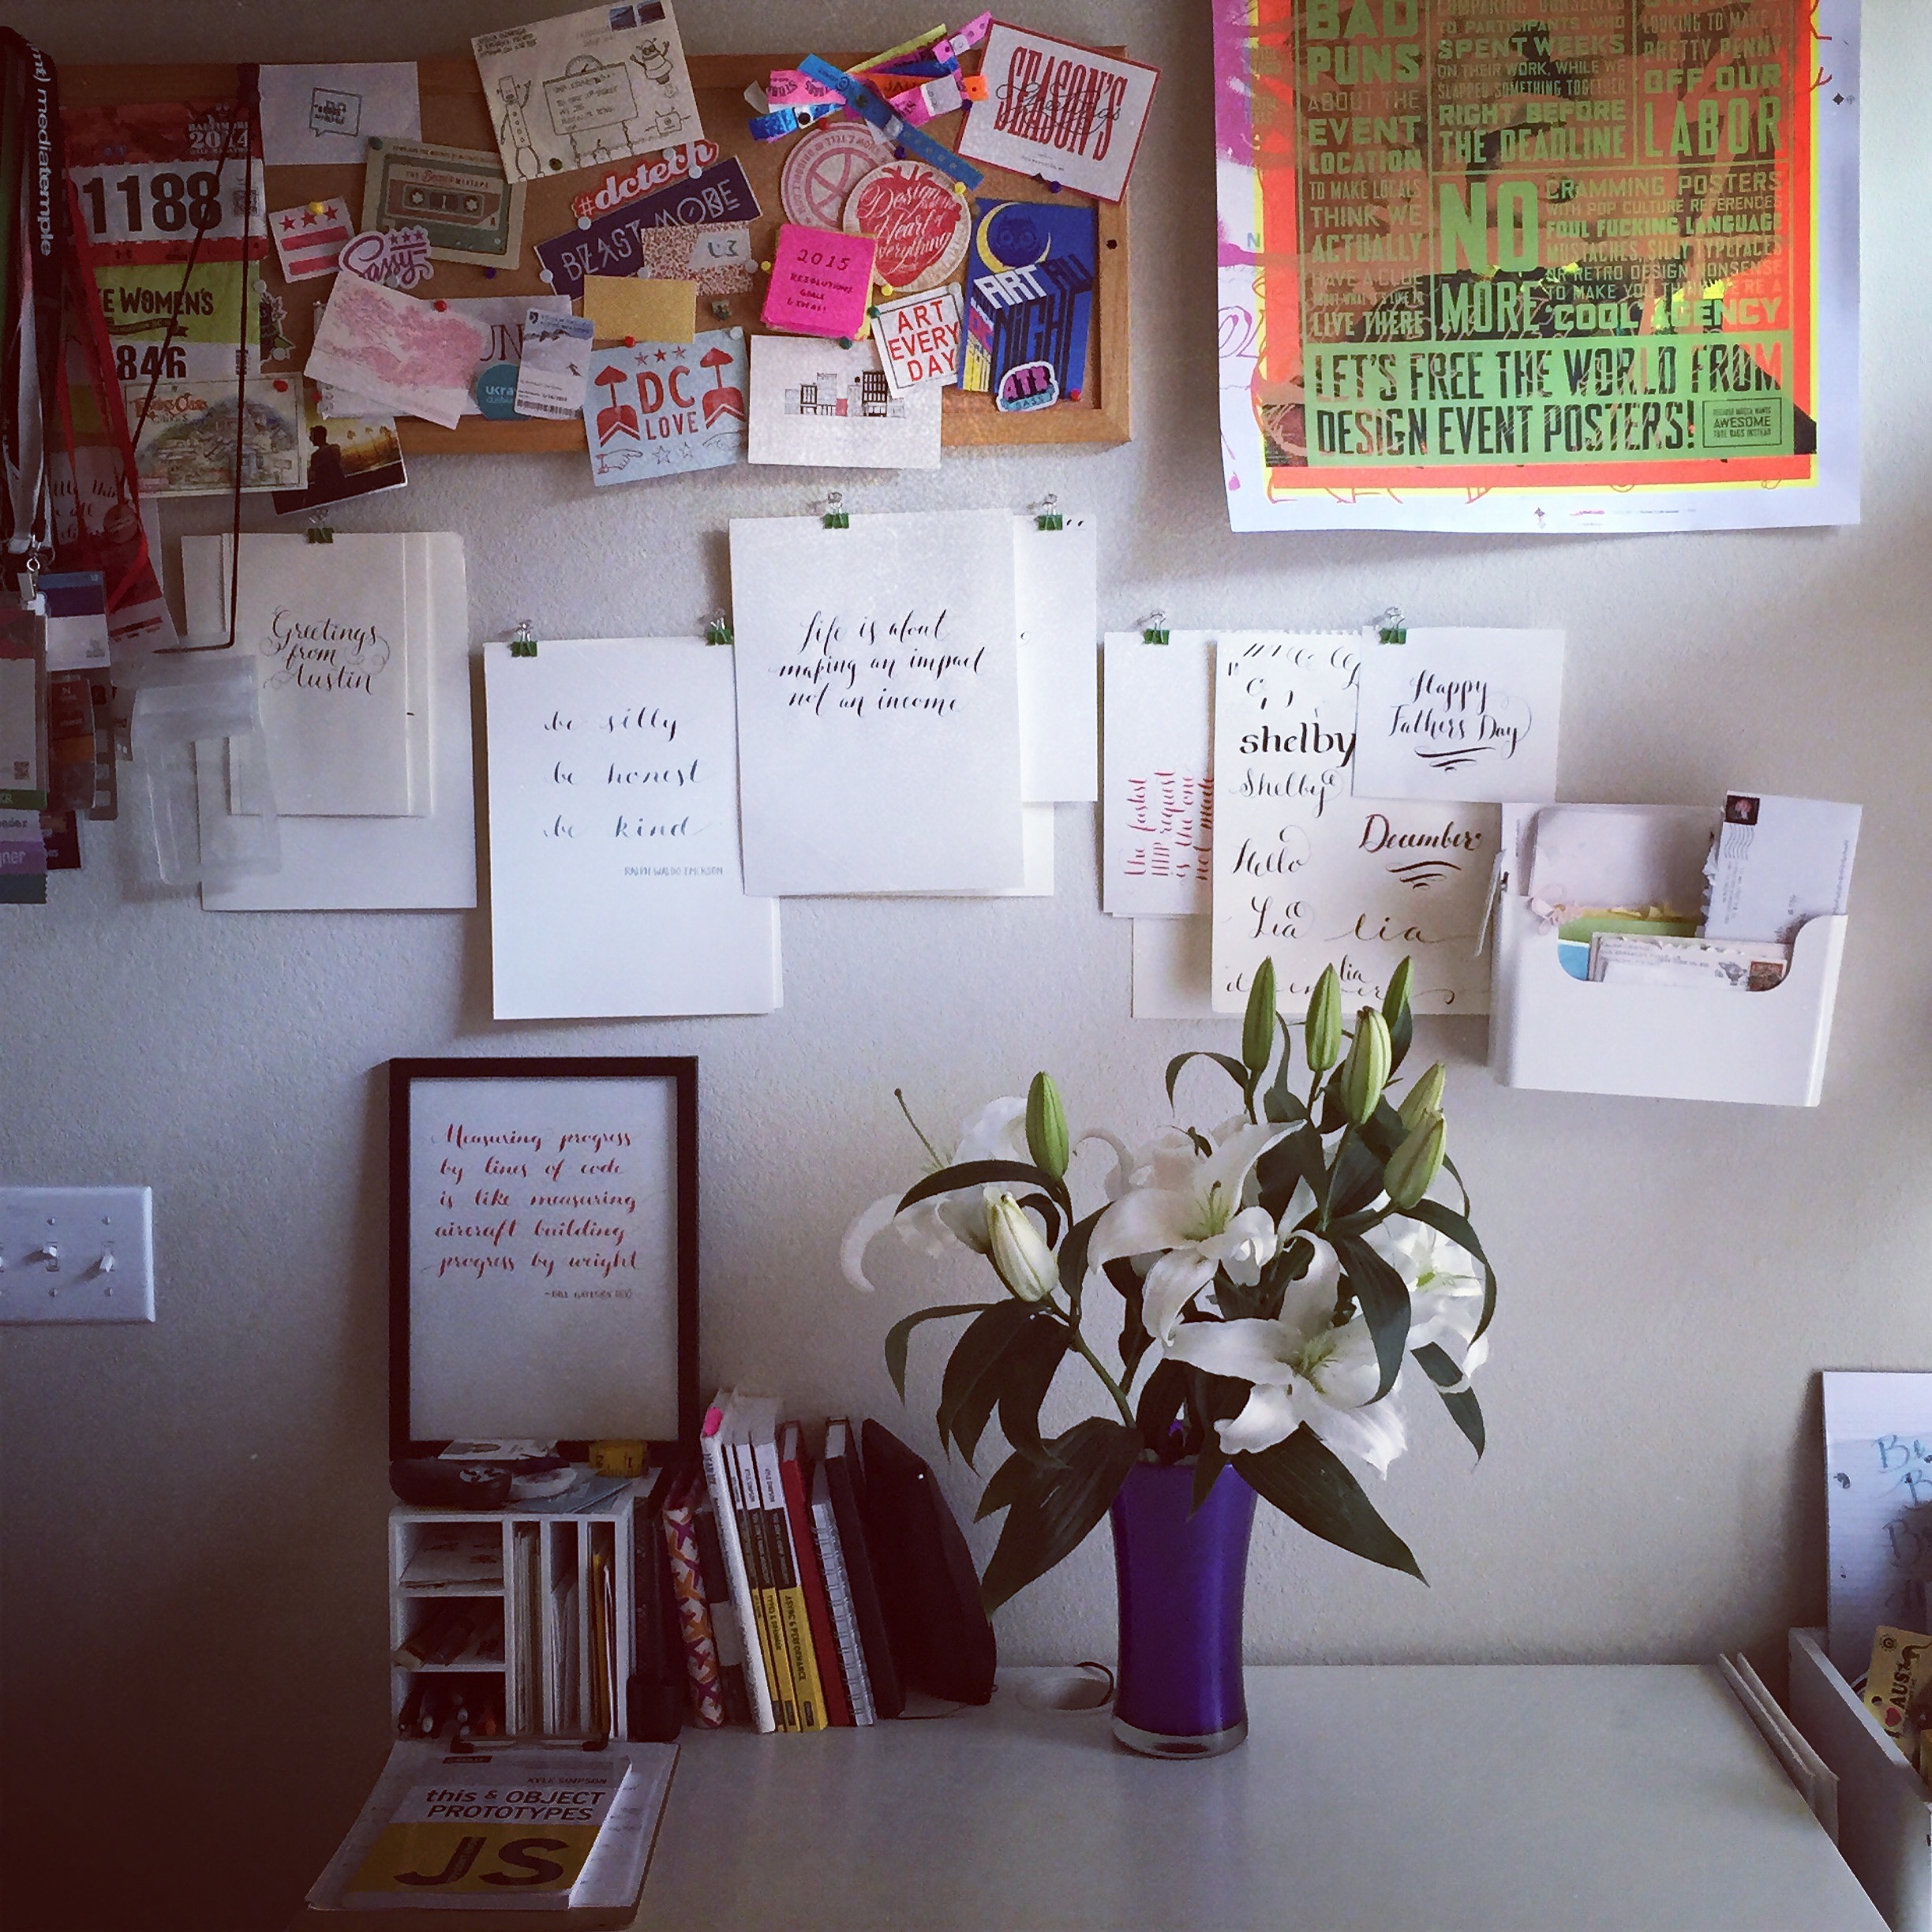 (mt) mediatemple
BALTIMORE
2014
1188
WOMEN'S
846
THE
MIXTAPE
Sassy
#dctech
BEAST MODE
SEASON'S
Greetings
Design
Heart
everything
2015
RESOLUTIONS
GOALS
& IDEAS!
ART
EVERY
DAY
ART
NIGHT
ATX
SASS
DC
LOVE
BAD
PUNS
ABOUT THE
EVENT
LOCATION
TO MAKE LOCALS
THINK WE
ACTUALLY
HAVE A CLUE
LIVE THERE
COMPARING OURSELVES
TO PARTICIPANTS WHO
SPENT WEEKS
ON THEIR WORK, WHILE WE
SLAPPED SOMETHING TOGETHER
RIGHT BEFORE
THE DEADLINE
LOOKING TO MAKE A
PRETTY PENNY
OFF OUR
LABOR
NO
MORE
CRAMMING POSTERS
WITH POP CULTURE REFERENCES
FOUL FUCKING LANGUAGE
MUSTACHES, SILLY TYPEFACES
OR RETRO DESIGN NONSENSE
TO MAKE YOU THINK WE'RE A
COOL AGENCY
LET'S FREE THE WORLD FROM
DESIGN EVENT POSTERS!
AWESOME
Greetings
from
Austin
be silly
be honest
be kind
RALPH WALDO EMERSON
Life is about
making an impact
not an income
the fastest
HTTP request
is the one
not made
shelby
Shelby
Hello
Lia
lia
lia
December
Happy
Fathers Day
Measuring progress
by lines of code
is like measuring
aircraft building
progress by weight
TYPES & GRAMMAR
ASYNC & PERFORMANCE
KYLE SIMPSON
this & OBJECT
PROTOTYPES
JS
AUS